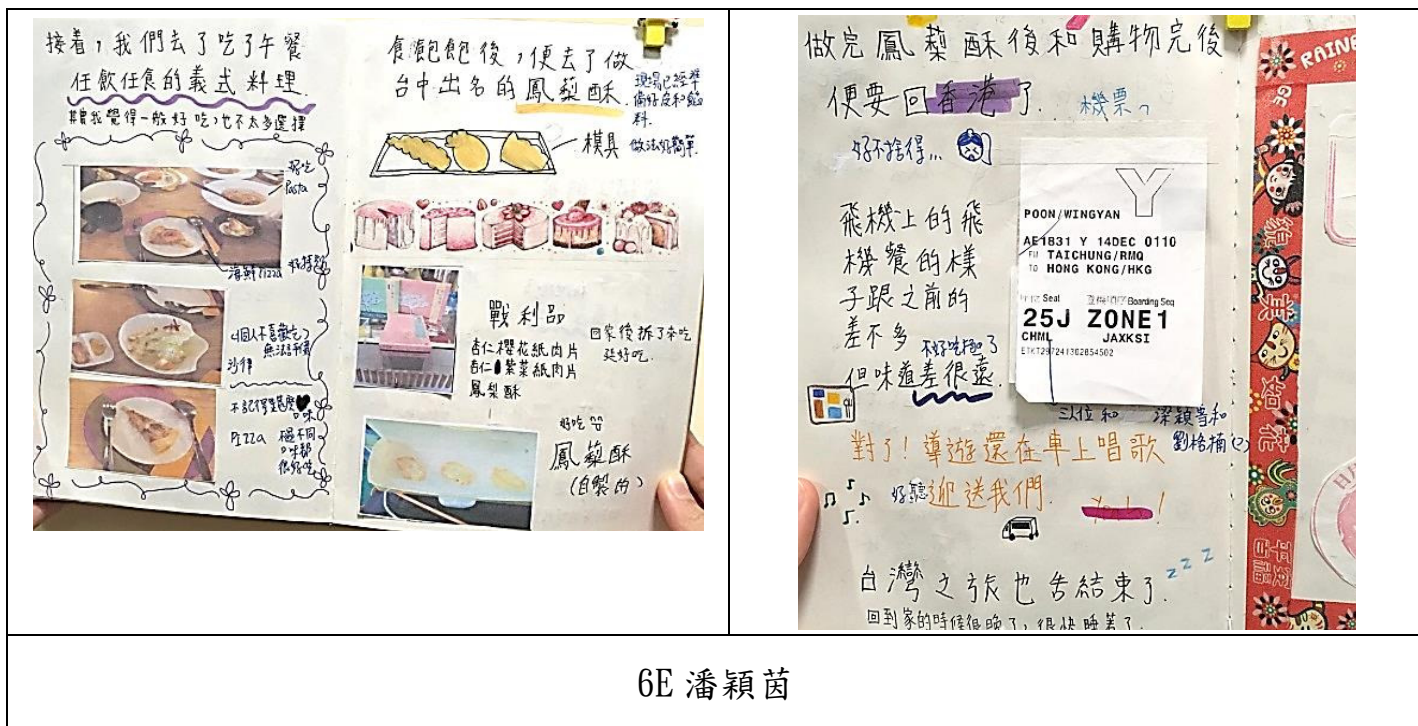 接着，我們去了吃了午餐
任飲任食的義式料理.
我覺得一般好吃，也不太多選擇
好吃
Pasta
海鮮Pizza
個人不喜歡吃
沙律
不記得是甚麼
口味
Pizza
不同
口味都
很好吃
食飽飽後，便去了做
台中出名的鳳梨酥.
現場已經準
備好皮和餡
料.
模具
做法好簡單.
戰利品
杏仁櫻花紙肉片
杏仁紫菜紙肉片
鳳梨酥
回家後拆了來吃
挺好吃.
好吃
鳳梨酥
(自製的)
做完鳳梨酥後和購物完後
便要回香港了.
機票
好不捨得...
飛機上的飛
機餐的樣
子跟之前的
差不多
不好吃極了
但味道差很遠.
Y
POON/WINGYAN
AE1831 Y 14DEC 0110
FM TAICHUNG/RMQ
TO HONG KONG/HKG
Seat
Boarding Seq
25J ZONE1
CHML JAXKSI
ETKT297241302854502
對了！導遊還在車上唱歌
好聽
迎送我們.
台灣之旅也告結束了.
zzz
回到家的時候很晚了，很快睡著了.
RAINB
6E 潘穎茵